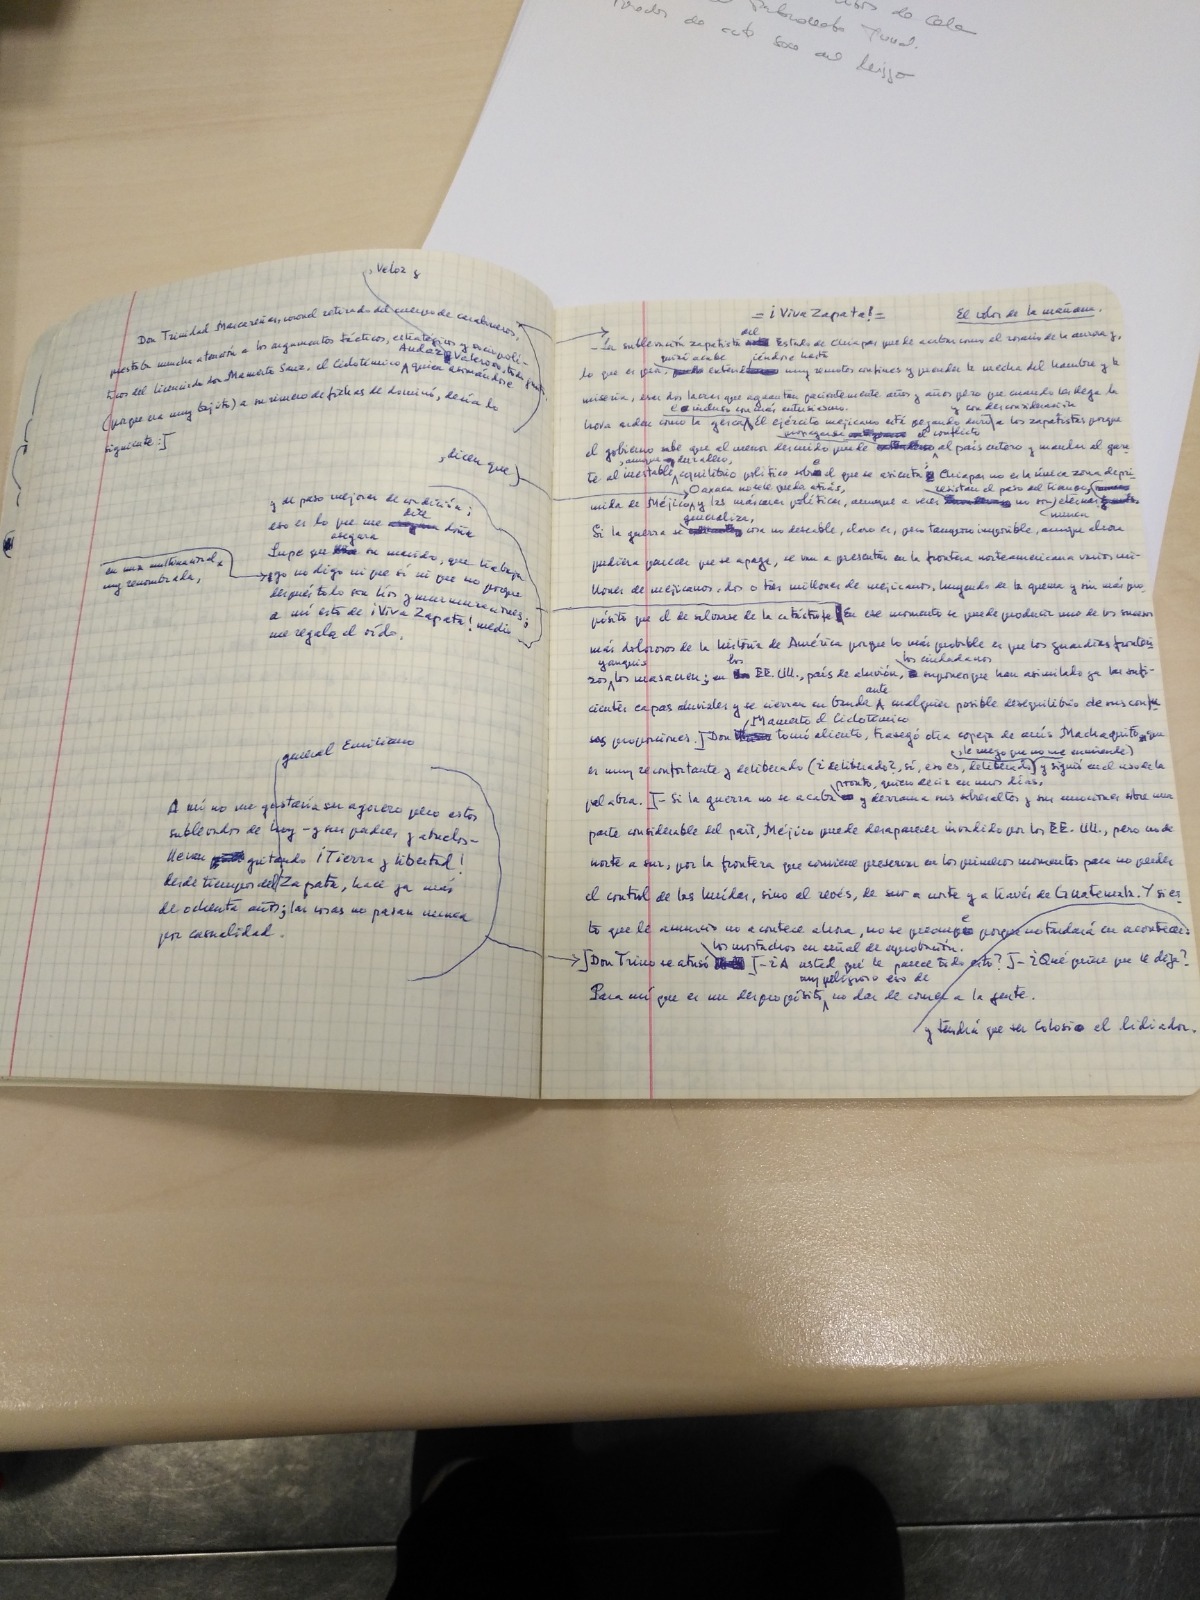 de Cela
, Veloz y
Don Trinidad Mascareñas, coronel retirado del cuerpo de carabineros,
prestaba mucha atención a los argumentos tácticos, estratégicos y
ticos del licenciado don Mamerto Sanz, el Ciclotímico, quien asimándose
(porque era muy bajito) a su número de fichas de dominó, decía lo
siguiente:]
, dicen que
y de paso mejorar de condición;
eso es lo que me dice doña
Lupe que asegura su marido, que trabaja
en una multinacional
muy renombrada,
yo no digo ni que sí ni que no porque
después todo son líos y murmuraciones;
a mí esto de ¡Viva Zapata! medio
me regala el oído.
general Emiliano
A mí no me gustaría ser agorero pero estos
sublevados de hoy - y sus padres y abuelos -
llevan gritando ¡Tierra y libertad!
desde tiempos del Zapata, hace ya más
de ochenta años; las cosas no pasan nunca
por casualidad.
= ¡Viva Zapata! =
El color de la mañana.
- La sublevación zapatista del Estado de Chiapas puede acabar como el rosario de la aurora y,
quizá acabe
iéndose hasta
lo que es peor, extend muy remotos confines y prender la mecha del hambre y la
miseria, esas dos lacras que aguantan pacientemente años y años pero que cuando les llega la
e incluso con más entusiasmo.
y con desconsideración
hora arden como la yesca. El ejército mejicano está pegando duro a los zapatistas porque
propagarse
el conflicto
el gobierno sabe que al menor descuido puede al país entero y mandar al gare-
, aunque duradero,
te al inestable equilibrio político sobre el que se asienta; Chiapas no es la única zona depri-
Oaxaca no se le queda atrás,
resistan el paso del tiempo,
mida de Méjico y las máscaras políticas, aunque a veces no son eternas
nunca
generaliza,
Si la guerra se cosa no deseable, claro es, pero tampoco imposible, aunque ahora
pudiera parecer que se apaga, se van a presentar en la frontera norteamericana varios mi-
llones de mejicanos, dos o tres millones de mejicanos, huyendo de la quema y sin más pro-
pósito que el de salvarse de la catástrofe. En ese momento se puede producir uno de los sucesos
más dolorosos de la historia de América porque lo más probable es que los guardias fronteri-
yanquis
los
los ciudadanos
zos los masacren; en EE. UU., país de aluvión, suponen que han asimilado ya las sufi-
ante
cientes capas aluviales y se cierran en banda cualquier posible desequilibrio de sus confu-
Mamerto el Ciclotímico
sas proporciones.] Don tomó aliento, trasegó otra copeja de anís Machaquito, que
(le ruego que no me enmiende)
es muy reconfortante y deliberado (¿deliberado?, sí, eso es, deliberado) y siguió en el uso de la
pronto, quiero decir en unos días,
palabra. ]- Si la guerra no se acaba y derrama sus sobresaltos y sus emociones sobre una
parte considerable del país, Méjico puede desaparecer invadido por los EE. UU., pero no de
norte a sur, por la frontera que conviene preservar en los primeros momentos para no perder
el control de las huidas, sino al revés, de sur a norte y a través de Guatemala. Y si es-
to que le anuncio no acontece ahora, no se preocupe porque no tardará en acontecer.
los mostachos en señal de aprobación.
[Don Trino se atusó ]- ¿A usted qué le parece todo esto? ]- ¿Qué quiere que le diga?
muy peligroso eso de
Para mí que es un despropósito no dar de comer a la gente.
y tendrá que ser Colosio el lidiador.